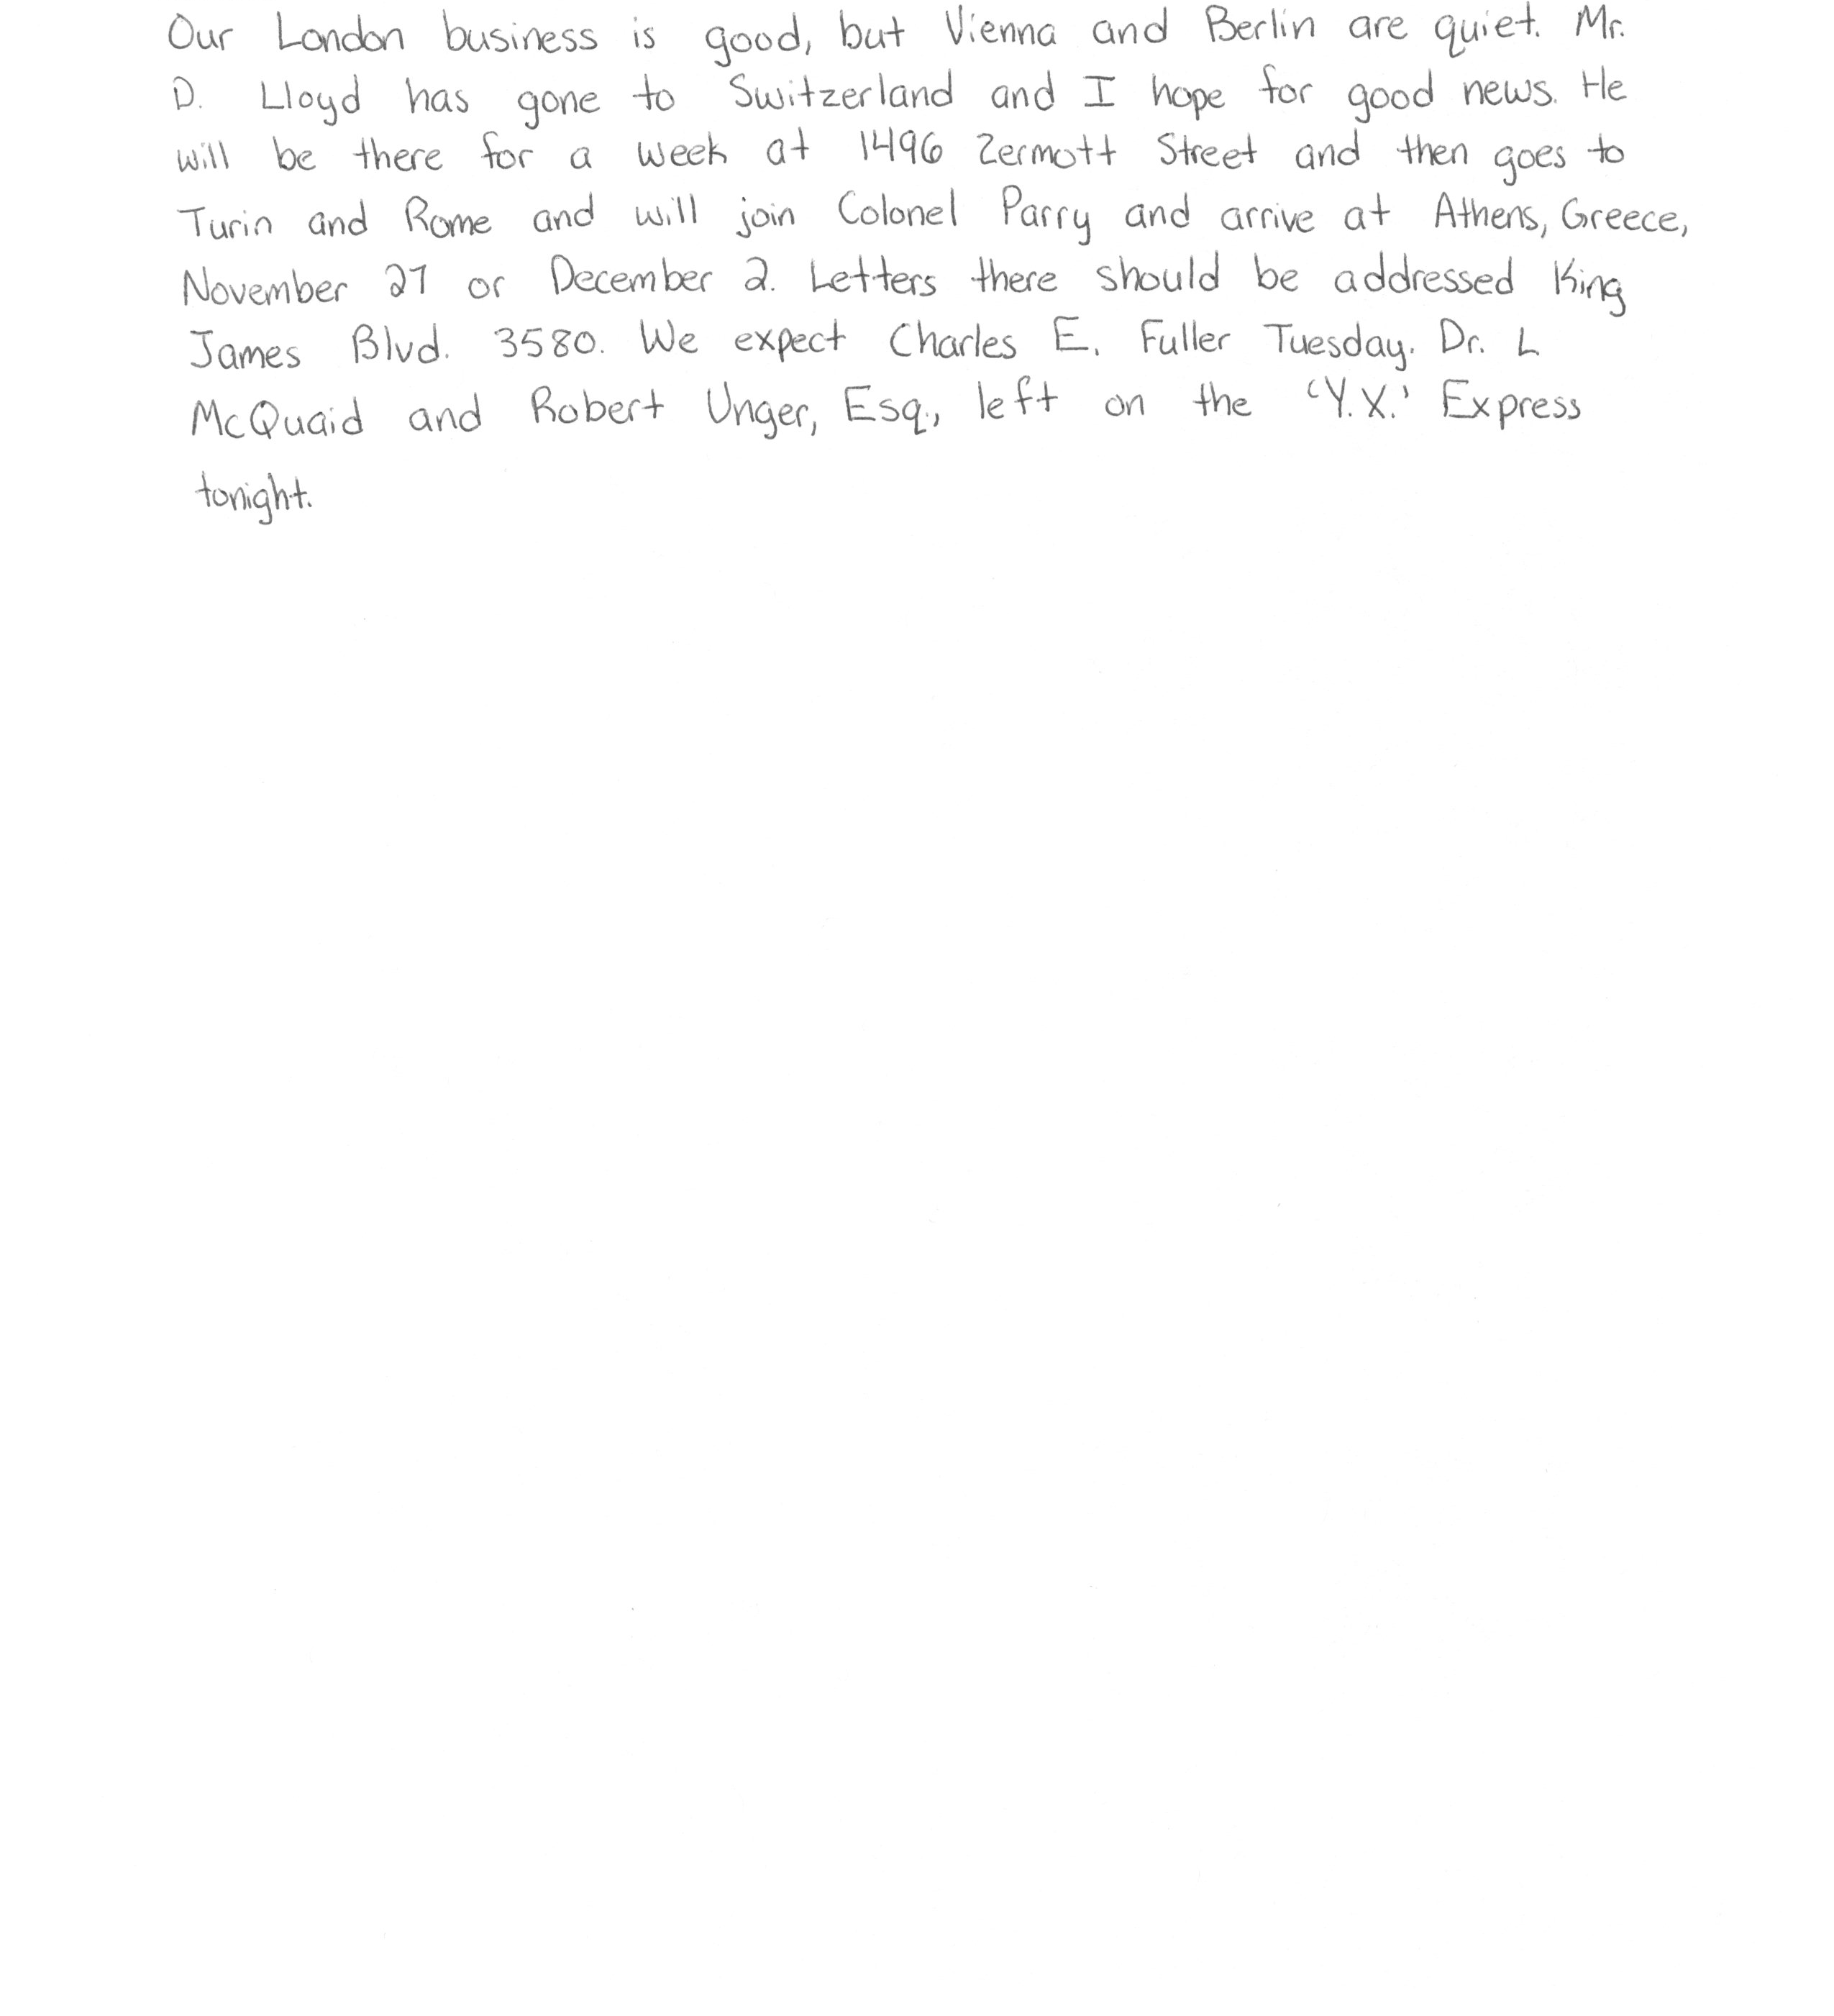 Our London business is good, but Vienna and Berlin are quiet. Mr.
D. Lloyd has gone to Switzerland and I hope for good news. He
will be there for a week at 1496 Zermott Street and then goes to
Turin and Rome and will join Colonel Parry and arrive at Athens, Greece,
November 27 or December 2. Letters there should be addressed King
James Blvd. 3580. We expect Charles E. Fuller Tuesday. Dr. L
McQuaid and Robert Unger, Esq., left on the 'Y.X.' Express
tonight.